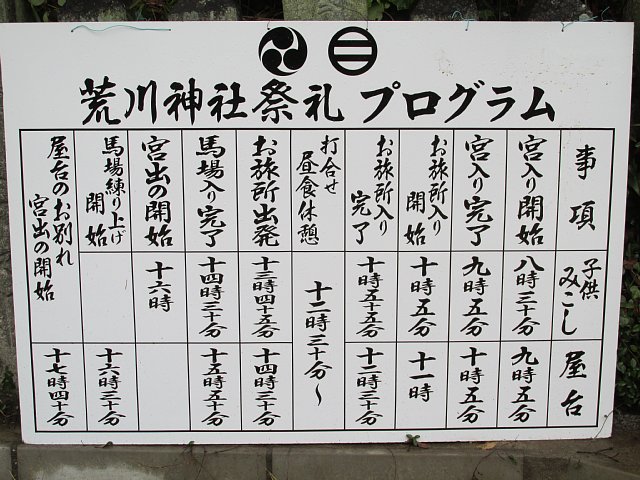 荒川神社祭礼 プログラム
事項
子供みこし
屋台
宮入り開始
八時三十分
九時五分
宮入り完了
九時五分
十時五分
お旅所入り
開始
十時五分
十一時
お旅所入り
完了
十時五十五分
十二時三十分
打合せ
昼食休憩
十二時三十分～
お旅所出発
十三時四十五分
十四時十分
馬場入り完了
十四時三十分
十五時五十分
宮出の開始
十六時
馬場練り上げ
開始
十六時三十分
屋台のお別れ
宮出の開始
十七時四十分